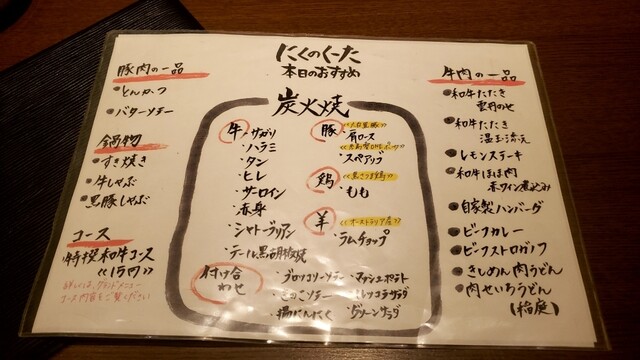 にくのくーた
本日のおすすめ
豚肉の一品
とんかつ
バターソテー
鍋物
すき焼き
牛しゃぶ
黒豚しゃぶ
コース
特撰和牛コース
詳しくは、グランドメニュー
コース内容をご覧ください
炭火焼
牛
・サガリ
・ハラミ
・タン
・ヒレ
・サーロイン
・赤身
・シャトーブリアン
・テール黒胡椒焼
豚
・肩ロース
・スペアリブ
鶏
≪黒さつま鶏≫
・もも
羊
≪オーストラリア産≫
・ラムチョップ
付け合わせ
・ブロッコリーソテー
・きのこソテー
・揚にんにく
・マッシュポテト
・ルッコラサラダ
・グリーンサラダ
牛肉の一品
和牛たたき
雲丹のせ
和牛たたき
温玉添え
レモンステーキ
和牛ほほ肉
赤ワイン煮込み
自家製ハンバーグ
ビーフカレー
ビーフストロガノフ
きしめん肉うどん
肉せいろうどん
(稲庭)